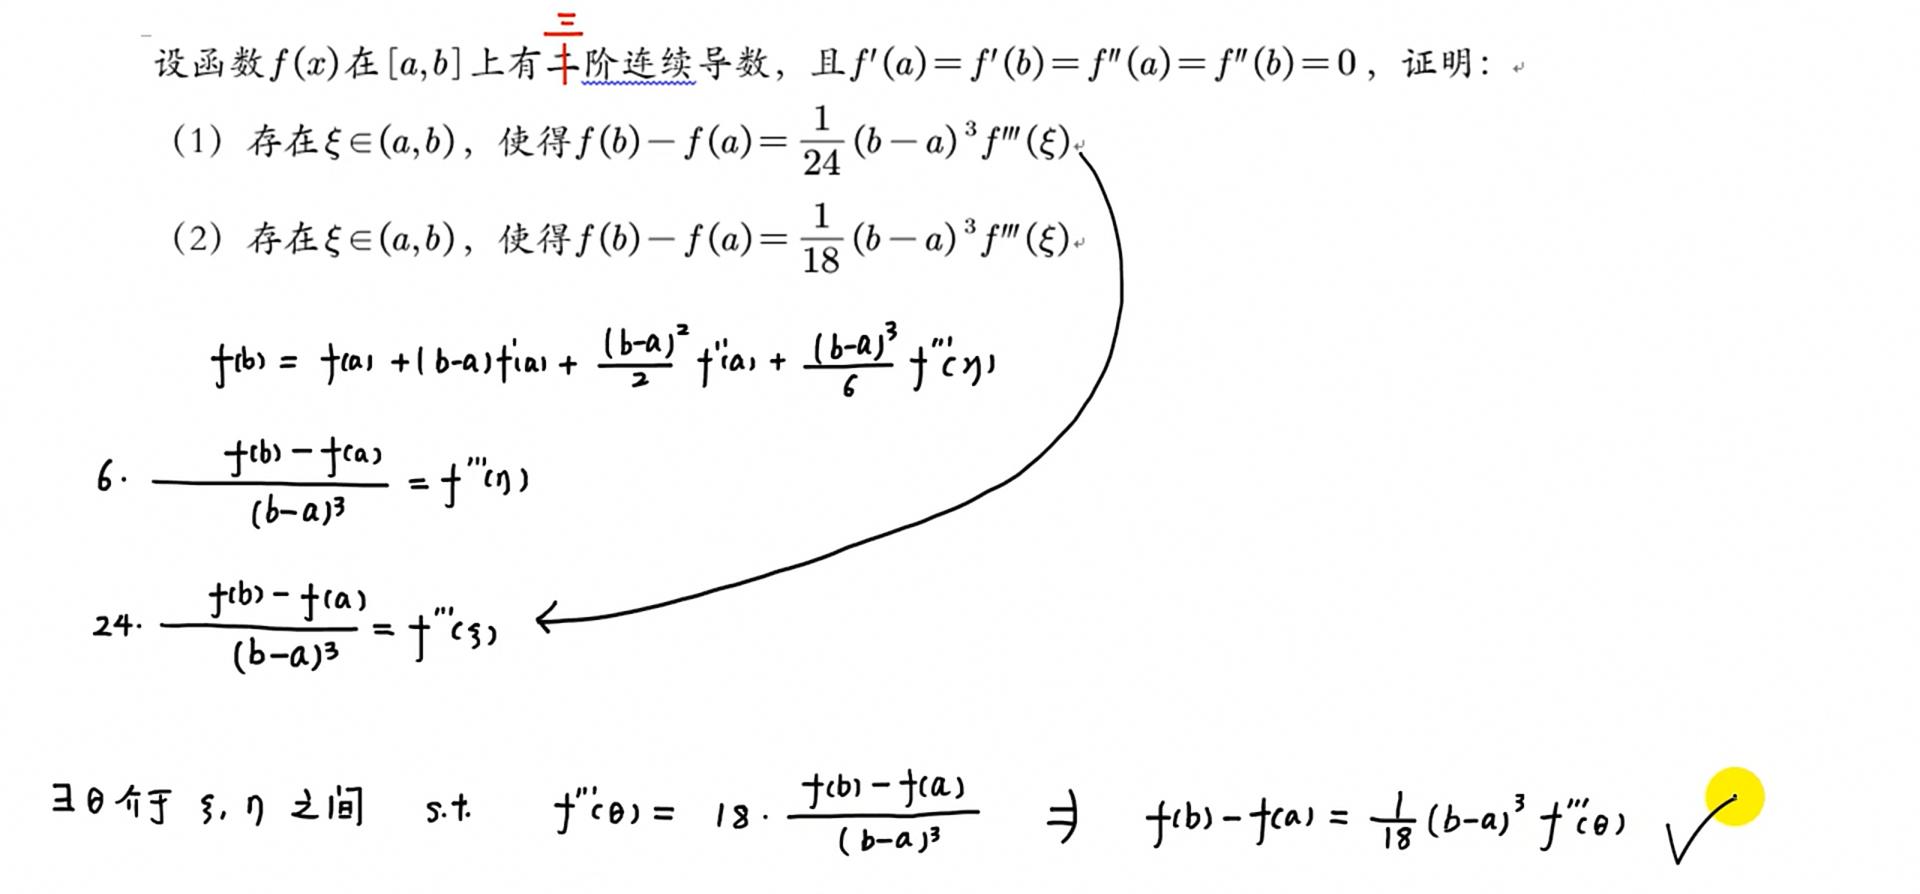 三
设函数f(x)在[a,b]上有二阶连续导数，且f′(a)=f′(b)=f″(a)=f″(b)=0，证明：
（1）存在ξ∈(a,b)，使得f(b)−f(a)=\frac{1}{24}(b−a)³f‴(ξ)
（2）存在ξ∈(a,b)，使得f(b)−f(a)=\frac{1}{18}(b−a)³f‴(ξ)
f(b) = f(a) + (b-a)f'(a) + \frac{(b-a)²}{2} f''(a) + \frac{(b-a)³}{6} f'''(η)
6· \frac{f(b) − f(a)}{(b-a)³} = f'''(η)
24· \frac{f(b) − f(a)}{(b-a)³} = f'''(ξ)
∃ θ 介于 ξ, η 之间 s.t. f'''(θ) = 18· \frac{f(b) − f(a)}{(b-a)³} ⇒ f(b) − f(a) = \frac{1}{18}(b-a)³ f'''(θ) √